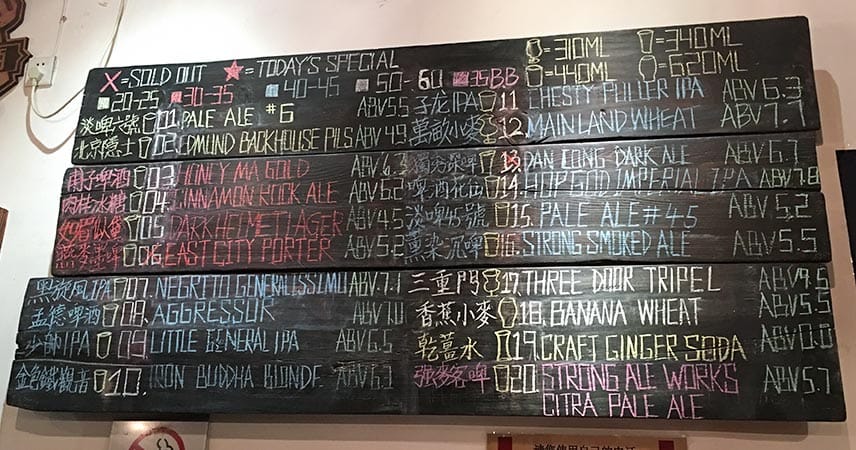 X=SOLD OUT ★=TODAY'S SPECIAL
20-25 30-35 40-45 50-60 35BB
=310ML =340ML
=440ML =620ML
淡啤六號 01. PALE ALE #6 ABV5.5
北京德士 02. EDMUND BACKHOUSE PILS ABV4.9
03. HONEY MA GOLD
肉桂冰糖 04. CINNAMON ROCK ALE ABV6.2
05. DARK HELMET LAGER ABV4.5
06. EAST CITY PORTER ABV5.2
黑旋風IPA 07. NEGRITO GENERALISSIMO ABV7.1
孟德啤酒 08. AGGRESSOR
少帥IPA 09. LITTLE GENERAL IPA ABV6.5
金色鐵觀音 10. IRON BUDDHA BLONDE
子龙IPA 11 CHESTY PULLER IPA ABV6.3
萬畝小麥 12 MAINLAND WHEAT ABV7.1
13. DAN CONG DARK ALE ABV6.7
啤酒花仙 14 HOP GOD IMPERIAL IPA ABV7.8
淡啤45號 15. PALE ALE #45 ABV5.2
16. STRONG SMOKED ALE ABV5.5
三重門 17. THREE DOOR TRIPEL ABV9.5
香蕉小麥 18. BANANA WHEAT ABV5.5
乾薑水 19. CRAFT GINGER SODA ABV0.0
20. STRONG ALE WORKS ABV5.7
CITRA PALE ALE